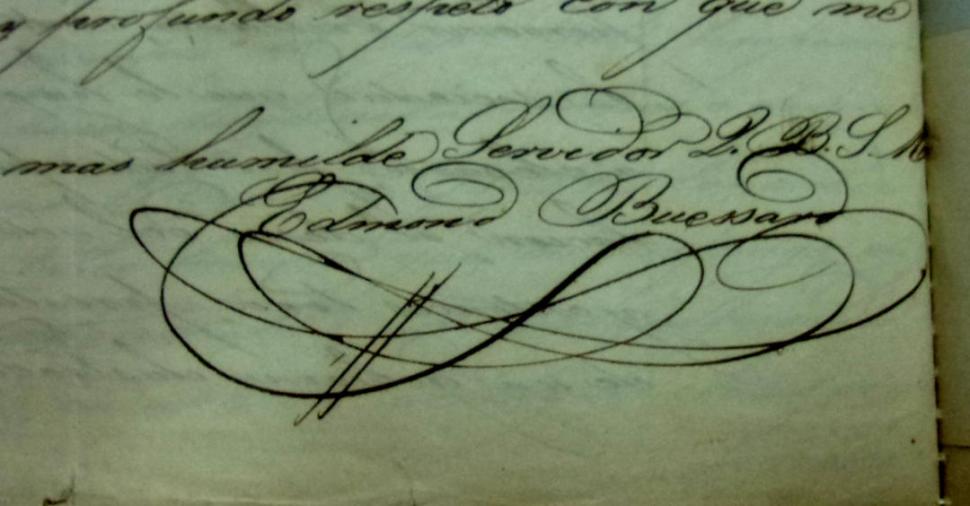 y profundo respeto con que me
mas humilde Servidor Q. B. S. M.
Edmond Buessard